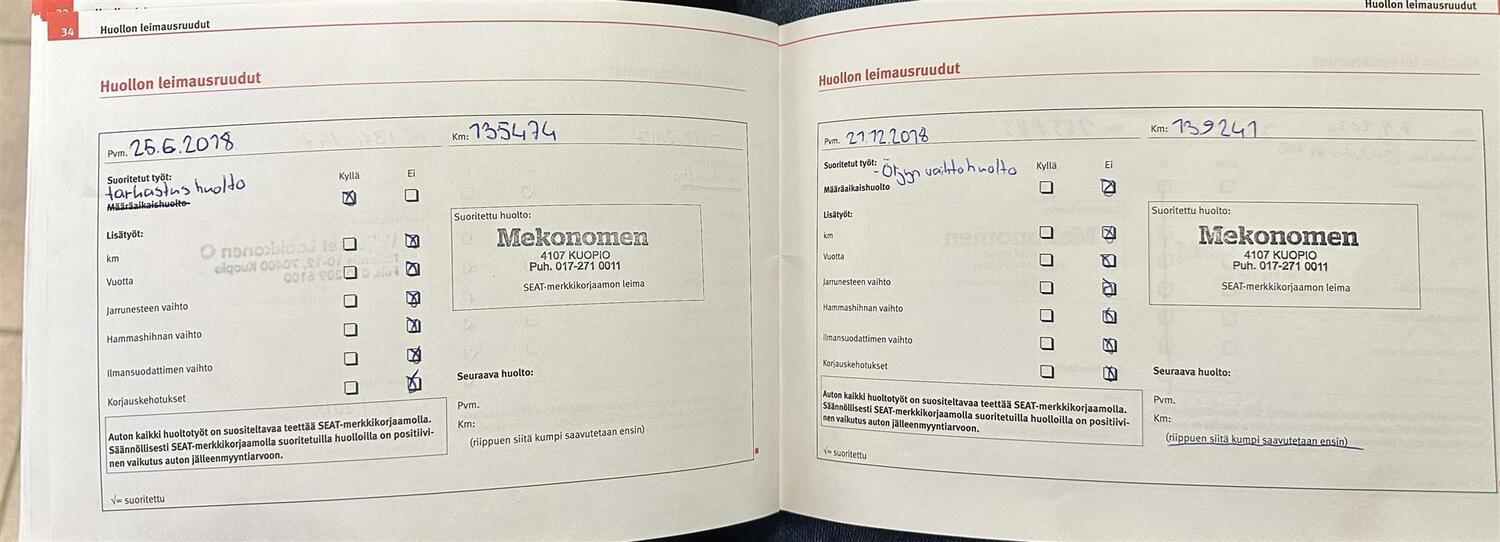 34
Huollon leimausruudut
Huollon leimausruudut
Pvm. 25.6.2018
Km: 135474
Suoritetut työt:
Kyllä
Ei
tarkastus huolto
Määräaikaishuolto
Lisätyöt:
km
Vuotta
Jarrunesteen vaihto
Hammashihnan vaihto
Ilmansuodattimen vaihto
Korjauskehotukset
Suoritettu huolto:
Mekonomen
4107 KUOPIO
Puh. 017-271 0011
SEAT-merkkikorjaamon leima
Seuraava huolto:
Pvm.
Km:
(riippuen siitä kumpi saavutetaan ensin)
Auton kaikki huoltotyöt on suositeltavaa teettää SEAT-merkkikorjaamolla.
Säännöllisesti SEAT-merkkikorjaamolla suoritetuilla huolloilla on positiivi-
nen vaikutus auton jälleenmyyntiarvoon.
√= suoritettu
Huollon leimausruudut
Huollon leimausruudut
Pvm. 21.12.2018
Km: 139241
Suoritetut työt:
- Öljyn vaihto huolto
Kyllä
Ei
Määräaikaishuolto
Lisätyöt:
km
Vuotta
Jarrunesteen vaihto
Hammashihnan vaihto
Ilmansuodattimen vaihto
Korjauskehotukset
Suoritettu huolto:
Mekonomen
4107 KUOPIO
Puh. 017-271 0011
SEAT-merkkikorjaamon leima
Seuraava huolto:
Pvm.
Km:
(riippuen siitä kumpi saavutetaan ensin)
Auton kaikki huoltotyöt on suositeltavaa teettää SEAT-merkkikorjaamolla.
Säännöllisesti SEAT-merkkikorjaamolla suoritetuilla huolloilla on positiivi-
nen vaikutus auton jälleenmyyntiarvoon.
√= suoritettu